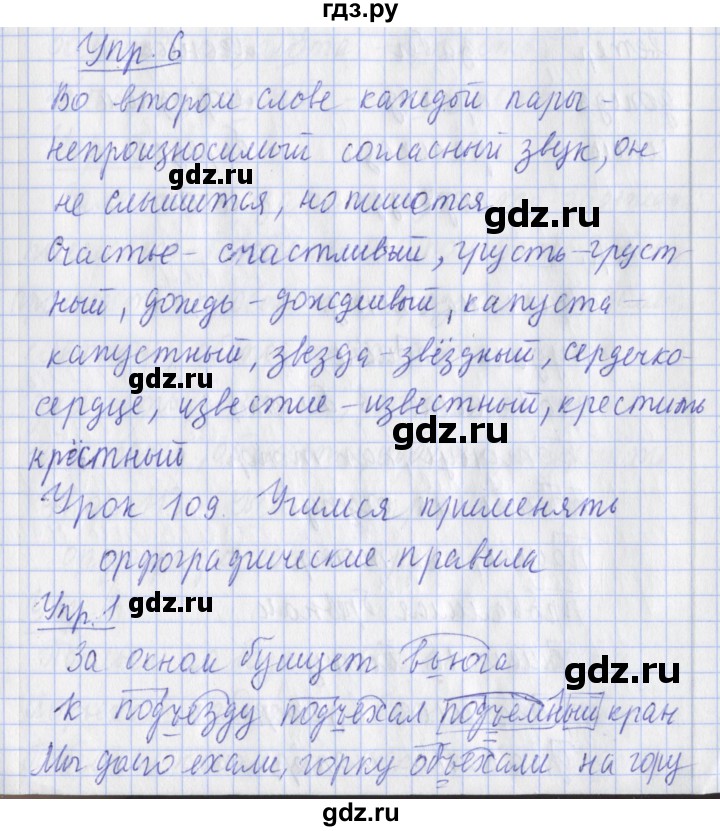 гдз.ру
Упр. 6
Во втором слове каждой пары -
непроизносимый согласный звук, он
gdz.ru
не слышится, но пишется.
gdz.ru
Счастье - счастливый, грусть - груст-
ный, дождь - дождливый, капуста -
капустный, звезда - звёздный, сердечко-
gdz.ru
сердце, известие - известный, крестить
gdz.ru
крёстный
Урок 109. Учимся применять
орфографические правила
Упр. 1
gdz.ru
За окном бушует вьюга
gdz.ru
К подъезду подъехал подъёмный кран
Мы долго ехали, горку объехали на гору
gdz.ru
gdz.ru